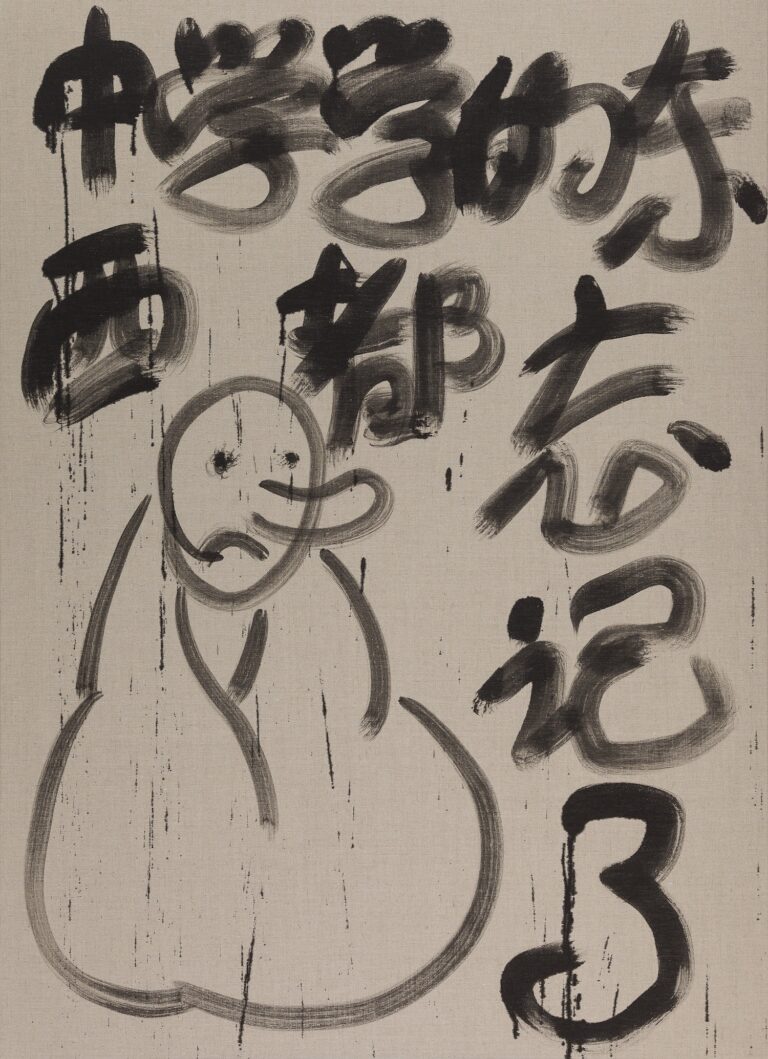 中学学的东
西都忘
记
了